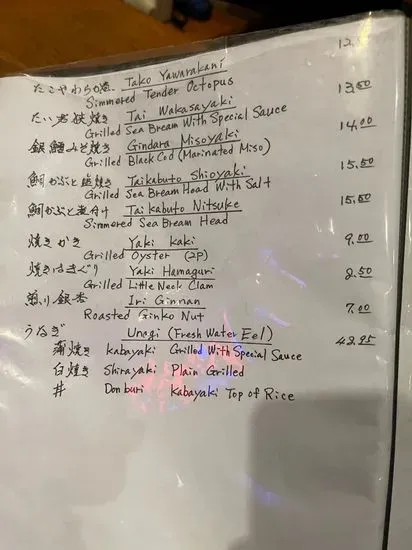 たこやわらか煮 Tako Yawarakani 12.
Simmered Tender Octopus
たい若狭焼き Tai Wakasayaki 13.50
Grilled Sea Bream With Special Sauce
銀鱈みそ焼き Gindara Misoyaki 14.00
Grilled Black Cod (Marinated Miso)
鯛かぶと塩焼き Taikabuto Shioyaki 15.50
Grilled Sea Bream Head With Salt
鯛かぶと煮付け Taikabuto Nitsuke 15.50
Simmered Sea Bream Head
焼きかき Yaki kaki 9.00
Grilled Oyster (2P)
焼きはまぐり Yaki Hamaguri
Grilled Little Neck Clam
煎り銀杏 Iri Ginnan 7.00
Roasted Ginko Nut
うなぎ Unagi (Fresh Water Eel) 42.95
蒲焼き kabayaki Grilled With Special Sauce
白焼き Shirayaki Plain Grilled
丼 Donburi kabayaki Top of Rice